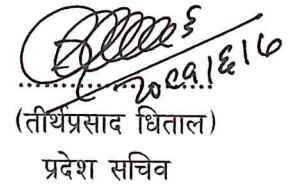 २०८१।६।७
(तीर्थप्रसाद धिताल)
प्रदेश सचिव